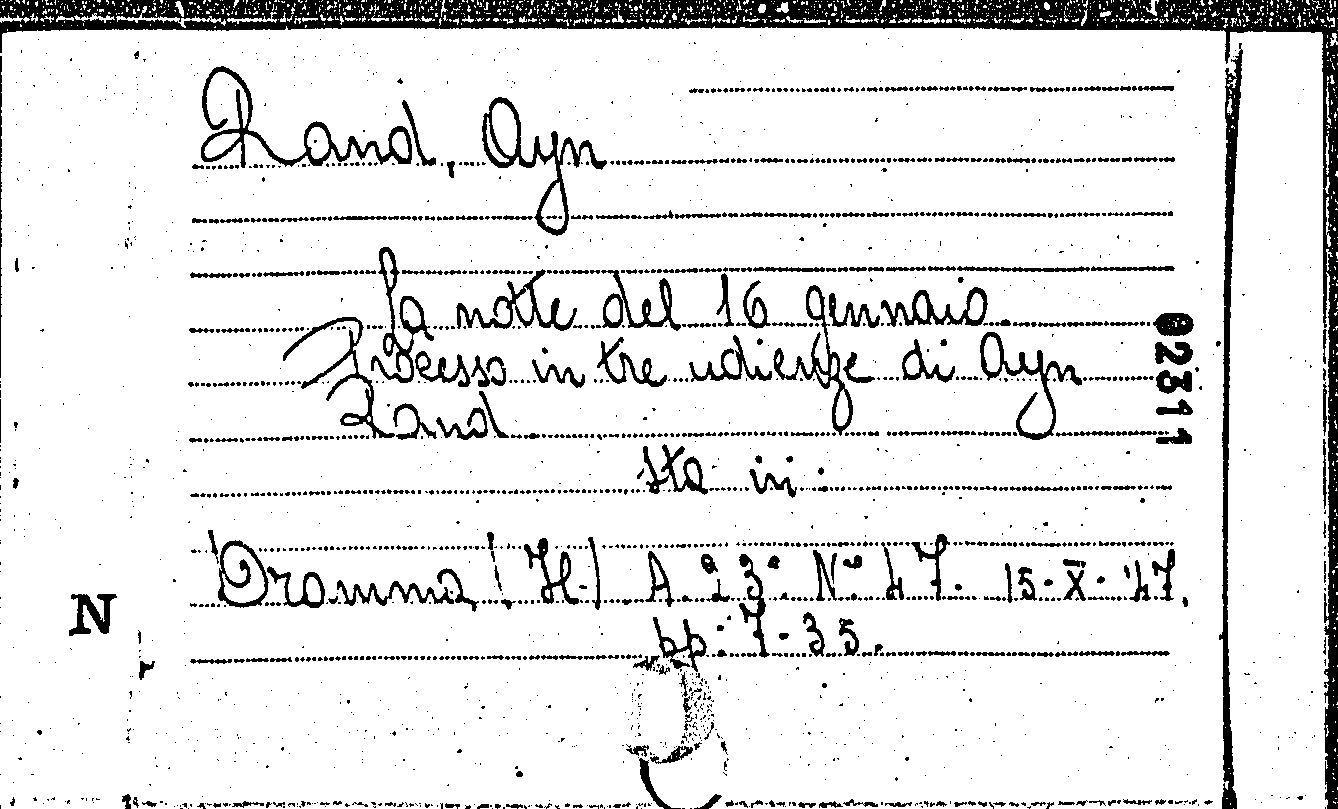 Rand, Ayn
La notte del 16 gennaio.
Processo in tre udienze di Ayn
Rand.
sta in:
Dramma (Il). A. 23° N° 47. 15-X-'47,
pp: 7-35.
N
02311